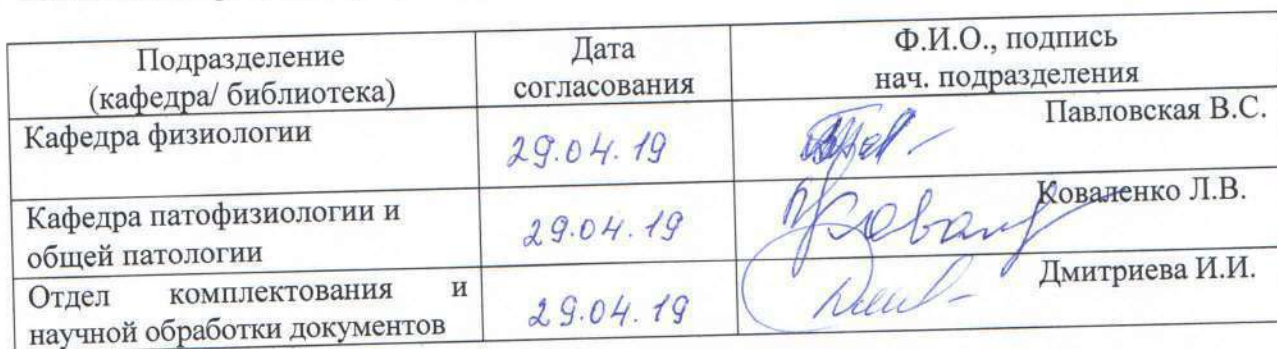 Подразделение
(кафедра/ библиотека)
Дата
согласования
Ф.И.О., подпись
нач. подразделения
Кафедра физиологии
29.04.19
Павловская В.С.
Кафедра патофизиологии и
общей патологии
29.04.19
Коваленко Л.В.
Отдел комплектования и
научной обработки документов
29.04.19
Дмитриева И.И.